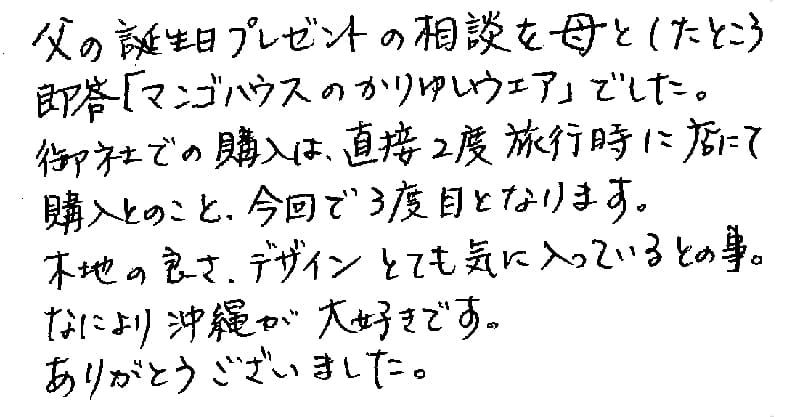 父の誕生日プレゼントの相談を母としたところ
即答「マンゴハウスのかりゆしウエア」でした。
御社での購入は、直接2度旅行時に店にて
購入とのこと、今回で3度目となります。
木地の良さ、デザインとても気に入っているとの事。
なにより沖縄が大好きです。
ありがとうございました。